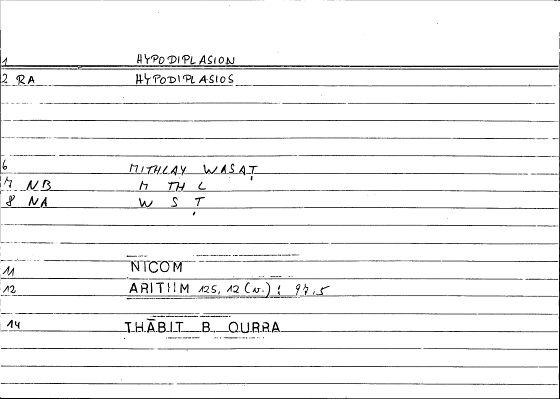 1 HYPODIPLASION
2 RA HYPODIPLASIOS
6 MITHLAY WASAṬ
7 NB M TH L
8 NA W S Ṭ
11 NICOM
12 ARITHM 125, 12 (v.) : 97,5
14 THĀBIT B. QURRA